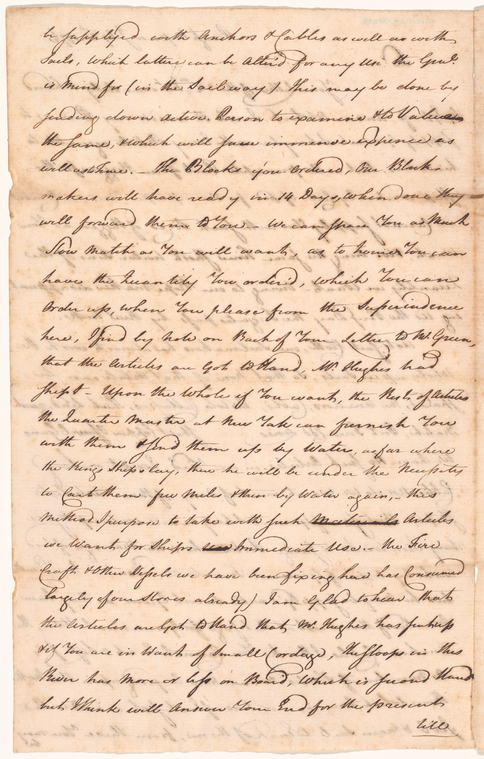 be supplyed with Anchors & Cables as well as with
Sails, which latter can be Alter'd for any Use the Genl.
is Mind for (in the Sail way) this may be done by
sending down Active Person to examine & to Value
the same, & which will save immence Expence as
well as time. - The Blocks you ordered, Our Block
makers will have ready in 14 Days, when done they
will forward them to You - We can spare You as Much
Slow Match as You will want, as to You can
have the Quantity You order'd, which You can
order up, when You please from the Superindence
here, I find by Note on Back of Your Letter to Mr. Green,
that the Articles are Got to Hand, Mr. Hughes had
Shipt - Upon the Whole of You want, the Rest of Articles
the Quarter Master at New York can furnish You
with them & send them up by Water, as far where
the Kings Ships lay, there he will be under the Necessity
to Cart them few Miles & then by Water again, - this
Method I purpose to take with such Articles
we Want for Ships Immediate Use - the Fire
Craft & Other Vessels we have been fixing here has Consumed
largely of our Stores already) I am Glad to hear that
the Articles are Got to Hand that Mr. Hughes has sent up
& if You are in Want of Small Cordage, the Sloops in this
River has More or less on Board, which is second Hand
but I think will Answer Your End for the present
till